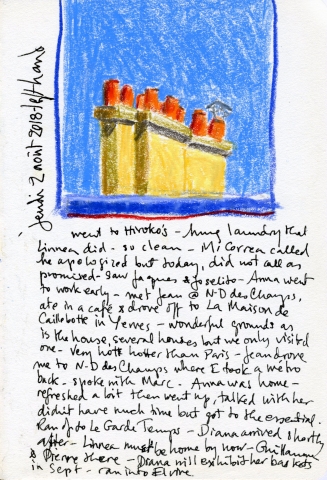 jeudi 2 août 2018 - left hand
went to Hiroko's - hung laundry that
Linnea did - so clean - Mr Correa called
he apologized but today, did not call as
promised - saw Jaques & Joselito - Anna went
to work early - met Jean @ N-D des Champs,
ate in a café & drove off to La Maison de
Caillebotte in Yerres - wonderful grounds as
is the house, several houses but we only visited
one - Very hot & hotter than Paris - Jean drove
me to N-D des Champs where I took a métro
back - spoke with Marc. Anna was home -
refreshed a bit then went up, talked with her
didn't have much time but got to the essential.
Ran off to Le Garde Temps - Diana arrived shortly
after - Linnea must be home by now - Guillaume
& Pierre there - Diana will exhibit her baskets
in Sept - ran into Elvire.